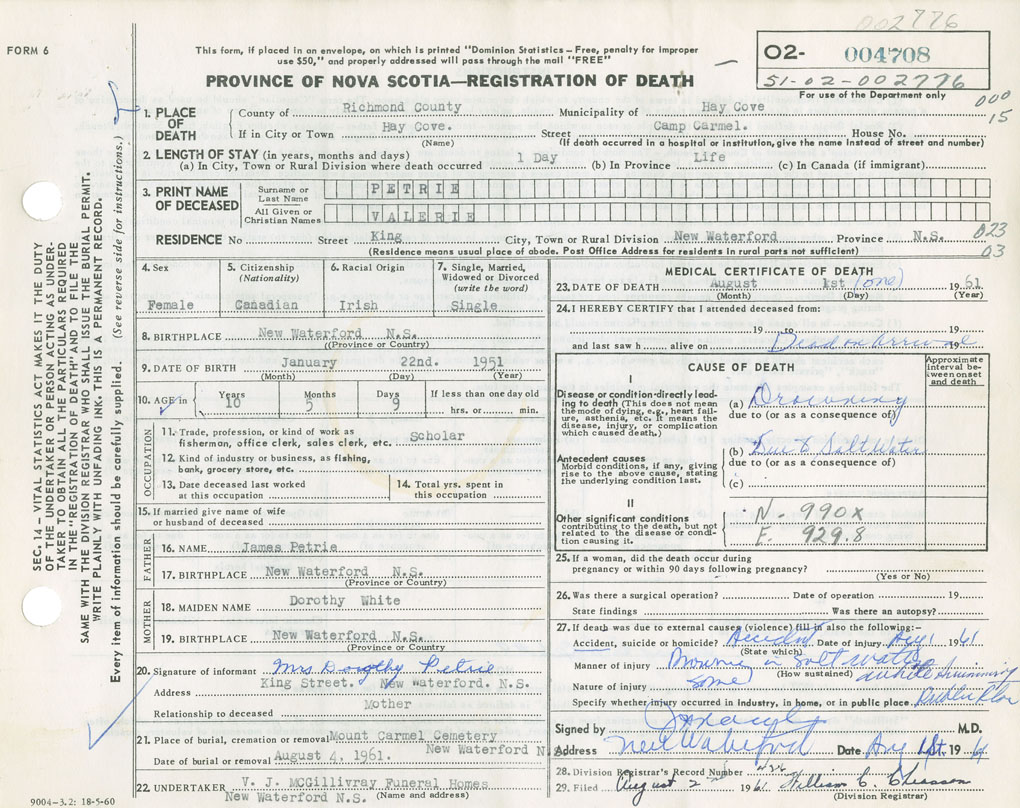 002776
FORM 6
This form, if placed in an envelope, on which is printed "Dominion Statistics – Free, penalty for improper
use $50," and properly addressed will pass through the mail "FREE"
PROVINCE OF NOVA SCOTIA—REGISTRATION OF DEATH
O2- 004708
51-02-002776
For use of the Department only
000
15
1. PLACE OF DEATH
County of Richmond County Municipality of Hay Cove
If in City or Town Hay Cove. Street Camp Carmel. House No.
(Name) (If death occurred in a hospital or institution, give the name instead of street and number)
2. LENGTH OF STAY (in years, months and days)
(a) In City, Town or Rural Division where death occurred 1 Day (b) In Province Life (c) In Canada (if immigrant)
3. PRINT NAME OF DECEASED
Surname or Last Name PETRIE
All Given or Christian Names VALERIE
RESIDENCE No Street King City, Town or Rural Division New Waterford Province N.S.
(Residence means usual place of abode. Post Office Address for residents in rural parts not sufficient)
023
03
SEC. 14 – VITAL STATISTICS ACT MAKES IT THE DUTY
OF THE UNDERTAKER OR PERSON ACTING AS UNDER-
TAKER TO OBTAIN ALL THE PARTICULARS REQUIRED
IN THE "REGISTRATION OF DEATH" AND TO FILE THE
SAME WITH THE DIVISION REGISTRAR WHO SHALL ISSUE THE BURIAL PERMIT.
WRITE PLAINLY WITH UNFADING INK. THIS IS A PERMANENT RECORD.
Every item of information should be carefully supplied. (See reverse side for instructions.)
4. Sex
Female
5. Citizenship
(Nationality)
Canadian
6. Racial Origin
Irish
7. Single, Married,
Widowed or Divorced
(write the word)
Single
8. BIRTHPLACE New Waterford N.S.
(Province or Country)
9. DATE OF BIRTH January 22nd. 1951
(Month) (Day) (Year)
10. AGE in Years Months Days If less than one day old
10 5 9 hrs. or min.
OCCUPATION
11. Trade, profession, or kind of work as
fisherman, office clerk, sales clerk, etc. Scholar
12. Kind of industry or business, as fishing,
bank, grocery store, etc.
13. Date deceased last worked
at this occupation
14. Total yrs. spent in
this occupation
15. If married give name of wife
or husband of deceased
FATHER
16. NAME James Petrie
17. BIRTHPLACE New Waterford N.S.
(Province or Country)
MOTHER
18. MAIDEN NAME Dorothy White
19. BIRTHPLACE New Waterford N.S.
(Province or Country)
20. Signature of informant Mrs Dorothy Petrie
Address King Street. New waterford. N.S.
Relationship to deceased Mother
21. Place of burial, cremation or removal Mount Carmel Cemetery
New Waterford N.S.
Date of burial or removal August 4, 1961.
22. UNDERTAKER V. J. McGillivray Funeral Homes
New Waterford N.S. (Name and address)
9004-3.2: 18-5-60
MEDICAL CERTIFICATE OF DEATH
23. DATE OF DEATH August 1st (one) 1961
(Month) (Day) (Year)
24. I HEREBY CERTIFY that I attended deceased from:
19 to 19
and last saw h alive on Dead on arrival 19
CAUSE OF DEATH
Approximate
interval be-
tween onset
and death
I
Disease or condition directly lead-
ing to death (This does not mean
the mode of dying, e.g., heart fail-
ure, asthenia, etc. It means the
disease, injury, or complication
which caused death.)
(a) Drowning
due to (or as a consequence of)
Antecedent causes
Morbid conditions, if any, giving
rise to the above cause, stating
the underlying condition last.
(b) Due to Salt Water
due to (or as a consequence of)
(c)
II
Other significant conditions
contributing to the death, but not
related to the disease or condi-
tion causing it.
N - 990X
E. 929.8
25. If a woman, did the death occur during
pregnancy or within 90 days following pregnancy?
(Yes or No)
26. Was there a surgical operation? Date of operation 19
State findings Was there an autopsy?
27. If death was due to external causes (violence) fill in also the following:-
Accident, suicide or homicide? Accident Date of injury Aug 1 1961
(State which)
Manner of injury in salt water
(How sustained) while swimming
Nature of injury
Specify whether injury occurred in industry, in home, or in public place Public Place
Signed by M.D.
Address New Waterford Date Aug 1st 1961
28. Division Registrar's Record Number
29. Filed August 2 1961 William C. Chiasson
(Division Registrar)